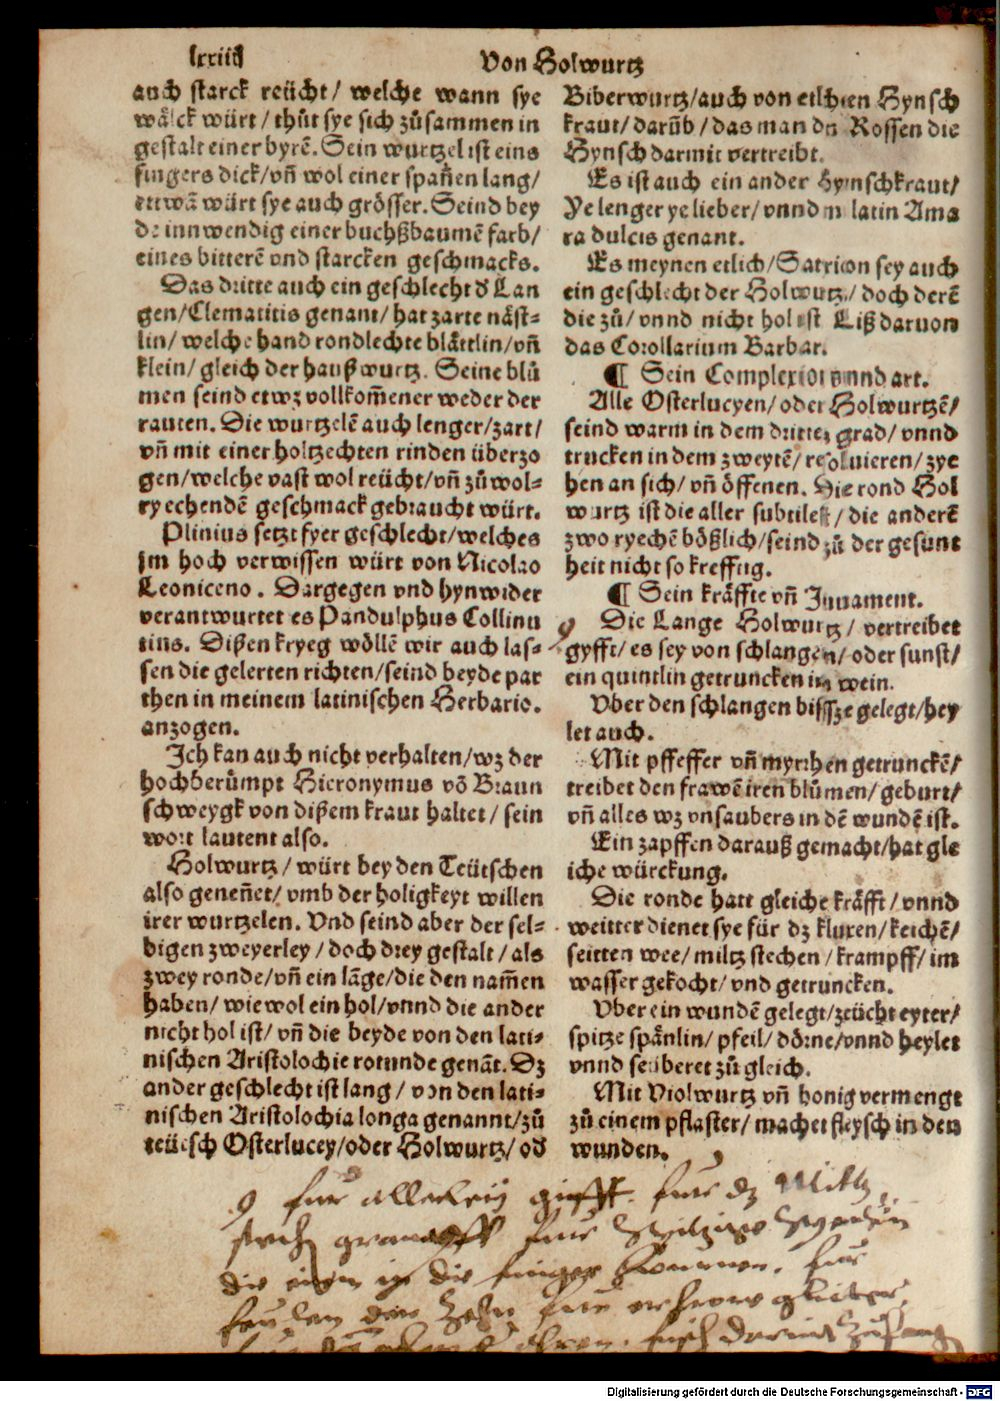 lxxiiij
Von Holwurtz
auch starck reücht/ welche wann sye
wälck würt/ thůt sye sich zůsammen in
gestalt einer byrē. Sein wurtzel ist eins
fingers dick/ vñ wol einer spañen lang/
ettwā würt sye auch grösser. Seind bey
de innwendig einer buchßbaumē farb/
eines bitterē vnd starcken geschmacks.
Das dritte auch ein geschlecht d' Lan
gen/ Clematitis genant/ hat zarte näst-
lin/ welche hand rondlechte blättlin/ vñ
klein/ gleich der haußwurtz. Seine blů
men seind etwz vollkom̄ener weder der
rauten. Die wurtzelē auch lenger/ zart/
vñ mit einer holtzechten rinden überzo
gen/ welche vast wol reücht/ vñ zů wol-
ryechendē geschmack gebraucht würt.
Plinius setzt fyer geschlecht/ welches
jm hoch verwissen würt von Nicolao
Leoniceno. Dargegen vnd hynwider
verantwurtet es Pandulphus Collinu
tius. Dißen kryeg wöllē wir auch las-
sen die gelerten richten/ seind beyde par
then in meinem latinischen Herbario.
anzogen.
Ich kan auch nicht verhalten/ wz der
hochberůmpt Hieronymus vō Braun
schweygk von dißem kraut haltet/ sein
wort lautent also.
Holwurtz/ würt bey den Teütschen
also geneñet/ vmb der holigkeyt willen
irer wurtzelen. Vnd seind aber der sel-
bigen zweyerley/ doch drey gestalt/ als
zwey ronde/ vñ ein lāge/ die den nam̄en
haben/ wiewol ein hol/ vnnd die ander
nicht hol ist/ vñ die beyde von den lati-
nischen Aristolochie rotunde genāt. Dz
ander geschlecht ist lang/ von den lati-
nischen Aristolochia longa genannt/ zů
teütsch Osterlucey/ oder Holwurtz/ od'
Biberwurtz/ auch von etlichen Hynsch
kraut/ darūb/ das man dn Rossen die
Hynsch darmit vertreibt.
Es ist auch ein ander Hynschkraut/
Ye lenger ye lieber/ vnnd in latin Ama
ra dulcis genant.
Es meynen etlich/ Satyrion sey auch
ein geschlecht der Holwurtz/ doch derē
die zů/ vnnd nicht hol ist Liß daruon
das Corollarium Barbar.
¶ Sein Complexion vnnd art.
Alle Osterlucyen/ oder Holwurtzē/
seind warm in dem dritten grad/ vnnd
trucken in dem zweytē/ resoluieren/ zye
hen an sich/ vñ öffenen. Die rond Hol
wurtz ist die aller subtilest/ die anderē
zwo ryechē bößlich/ seind zů der gesunt
heit nicht so kreffftig.
¶ Sein kräffte vñ Juuament.
Die Lange Holwurtz/ vertreibet
gyfft/ es sey von schlangen/ oder sunst/
ein quintlin getruncken im wein.
Vber den schlangen bissze gelegt/ hey
let auch.
Mit pfeffer vñ myrrhen getrunckē/
treibet den frawē iren blůmen/ geburt/
vñ alles wz vnsaubers in dē wundē ist.
Ein zapffen darauß gemacht/ hat gle
iche würckung.
Die ronde hatt gleiche kräfft/ vnnd
weitter dienet sye für dz kluxen/ keichē/
seitten wee/ miltz stechen/ krampff/ im
wasser gekocht/ vnd getruncken.
Vber ein wundē gelegt/ zeücht eyter/
spitze spänlin/ pfeil/ dörne/ vnnd heylet
vnnd seüberet zů gleich.
Mit Violwurtz vñ honig vermengt
zů einem pflaster/ machet fleysch in den
wunden.
fur allerley gifft. fur dz Miltz
die in die finger kommen. fur
Digitalisierung gefördert durch die Deutsche Forschungsgemeinschaft - DFG